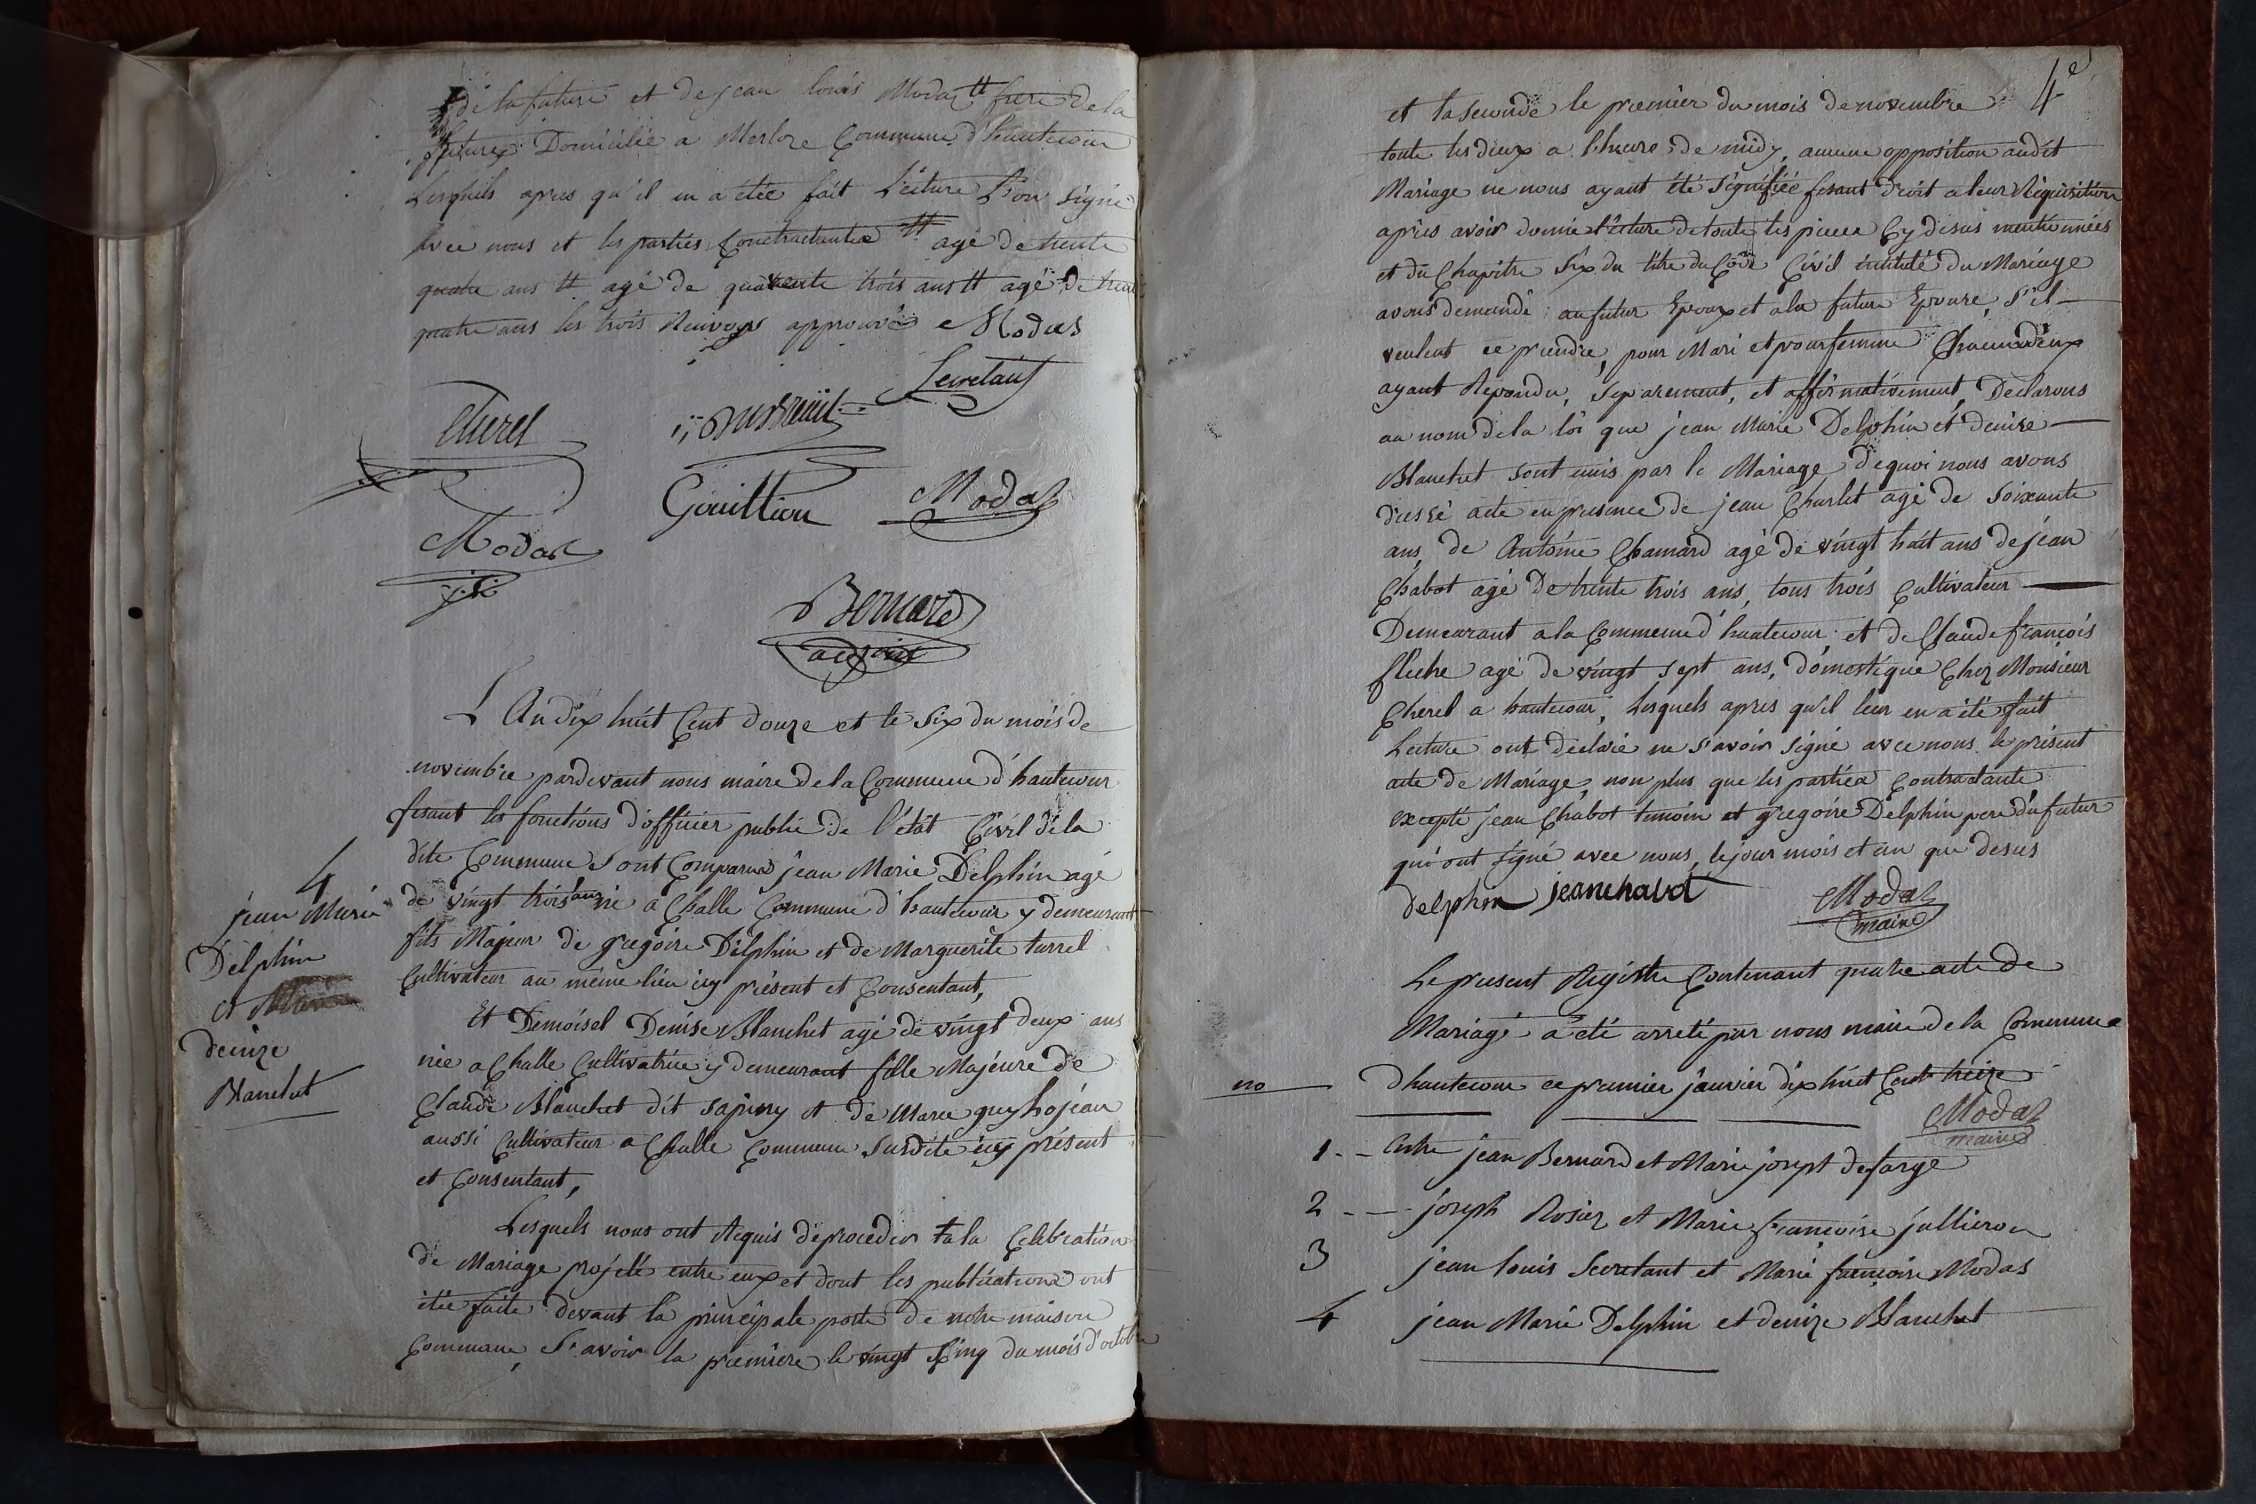 de la future et de jean louis Modas # frere de la
future Domicilié a Merloz Commune d'hautecour
Lesquels apres qu'il en a étée fait Lécture L'on signé
avec nous et les parties Contractantes # agé de trente
quatre ans # agé de quarente trois ans # agé de trente
quatre ans les trois Renvoys approuvés Modas
Secretant
Cherel
Gouilliou
Modas
Modas
Bernard
adjoint
L'An dix huit Cent douze et le Six du mois de
novembre pardevant nous maire de la Commune d'hautecour
fesant les fonctions d'officier public de l'état Civil de la
dite Commune Sont Comparus jean Marie Delphin agé
de vingt trois ans né a Challe Commune d'hautecour y demeurant
fils Majeur de gregoire Delphin et de Marguerite turrel
Cultivateur au même lieu icy présent et Consentant,
Et Demoisel Denise Blanchet agé de vingt deux ans
née a Challe Cultivatrice y demeurant fille Majeure de
Claude Blanchet dit sapiny et de Marie guy hojean
aussi Cultivateur a Challe Commune Surdite icy présent
et Consentant,
Lesquels nous ont Requis de proceder a la Célébration
de Mariage projeté entre eux et dont les publications ont
étée faite devant la principale porte de notre maison
Commune, S'avoir la premiere le vingt Cinq du mois d'octobre
4
jean Marie
Delphin
et
denize
Blanchet
4e
et la seconde le premier du mois de novembre
toute les deux a l'heure de midy, aucune opposition audit
Mariage ne nous ayant été signifiée fesant droit a leur Réquisition
après avoir donné l'écture de toute les piece Cy desus mentionnées
et du Chapitre Six du titre du Code Civil intitulé du Mariage
avons demandé au futur Epoux et a la future Epouse, S'il
veulent ce prendre, pour Mari et pour femme Chacun d'eux
ayant Repondu, Separement, et affirmativement, Declarons
au nom de la loi que jean Marie Delphin et denise
Blanchet sont unis par le Mariage de quoi nous avons
dressé acte en presence de jean Charlet agé de Soixante
ans, de Antoine Chamard agé de vingt huit ans de jean
Chabot agé de trente trois ans, tous trois Cultivateur
Demeurant a la Commune d'hautecour et de Claude françois
fleche agé de vingt sept ans, domestique Chez Monsieur
Cherel a hautecour, Lesquels apres qu'il leur en a été fait
Lecture ont déclaré ne S'avoir signé avec nous le présent
acte de Mariage, non plus que les parties Contractante
excepté jean Chabot temoin et gregoire Delphin pere du futur
qui ont signé avec nous, le jour mois et an que desus
delphin jeanchabot Modas
maire
Le present Registre Contenant quatre acte de
Mariage a été arreté par nous maire de la Commune
d'hautecour ce premier janvier dix huit Cent treize
no
Modas
maire
1 Entre jean Bernard et Marie josept defarge
2 joseph Rosier et Marie francoise jullieron
3 jean louis Secretant et Marie françoise Modas
4 jean Marie Delphin et denize Blanchet